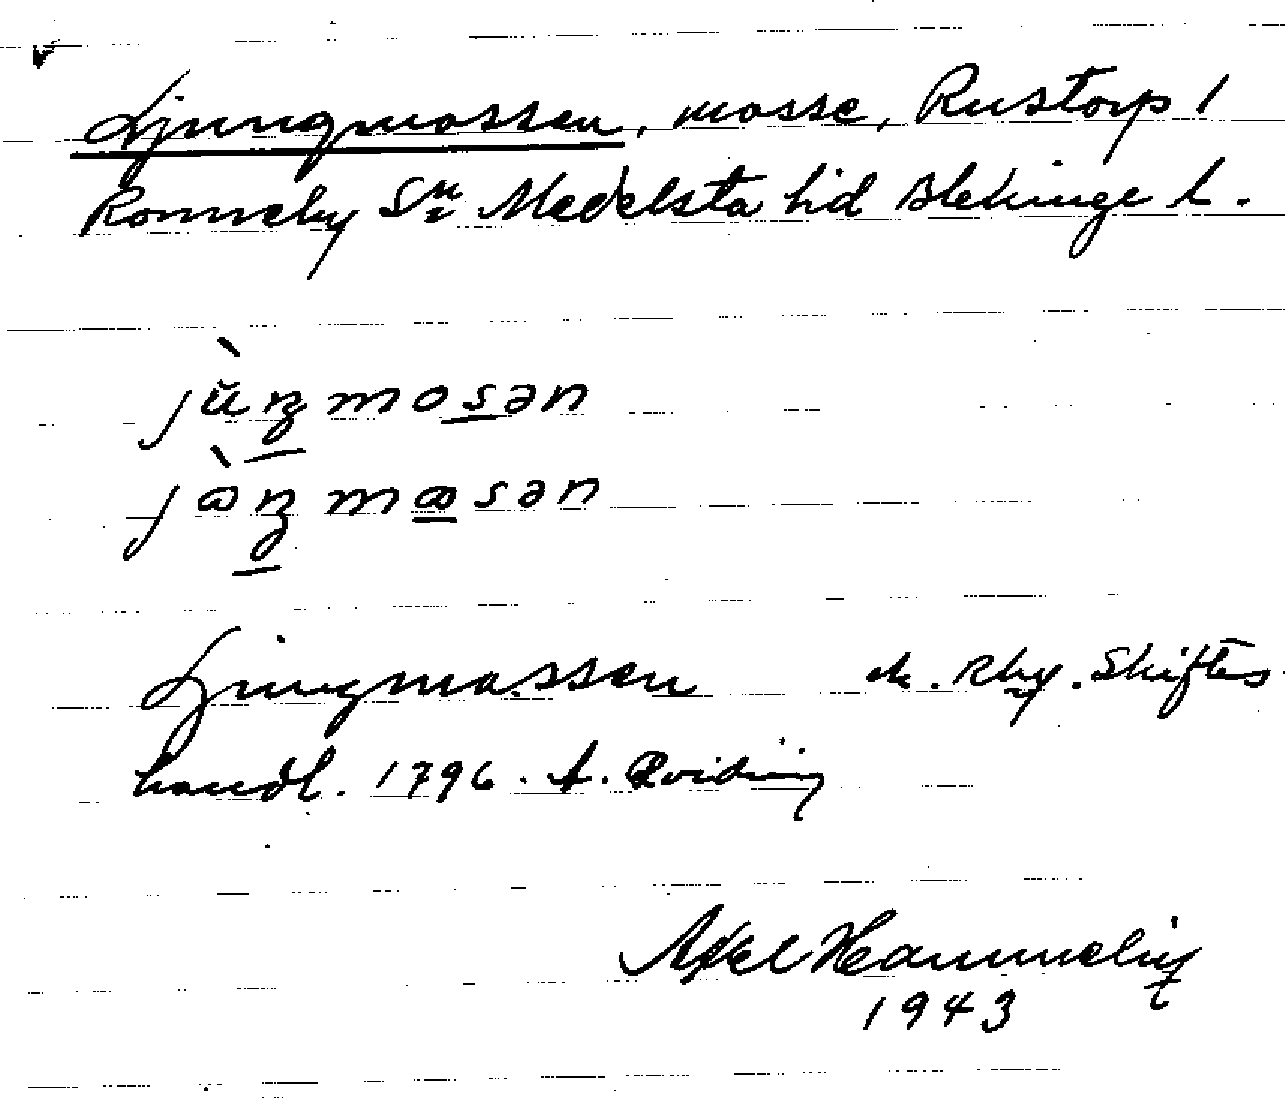 Ljungmossen, mosse, Rustorp 1
Ronneby Sn Medelsta hd Blekinge l.
jùŋmosən
jòŋmosən
Ljungmossen Rby. Skiftes
handl. 1796.
Axel
1943